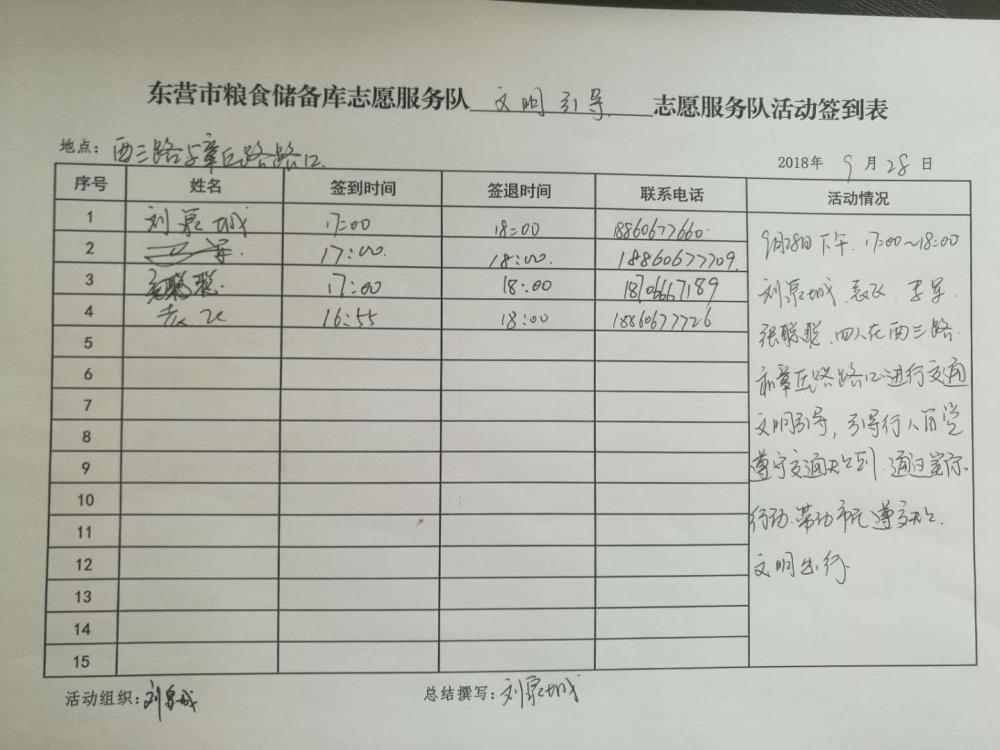 东营市粮食储备库志愿服务队 文明引导 志愿服务队活动签到表
地点：西三路与章丘路路口
2018年 9 月 28 日
序号 姓名 签到时间 签退时间 联系电话 活动情况
1 刘泉城 17:00 18:00 18860677660
2 17:00 18:00 18860677709
3 聪聪 17:00 18:00 18706667189
4 16:55 18:00 18860677726
5
6
7
8
9
10
11
12
13
14
15
9月28日下午 17:00~18:00
刘泉城、袁飞、李军、
张聪聪、四人在西三路
和章丘路路口进行交通
文明引导，引导行人自觉
遵守交通规则，通过实际
行动、带动市民遵交规、
文明出行
活动组织：刘泉城
总结撰写：刘泉城